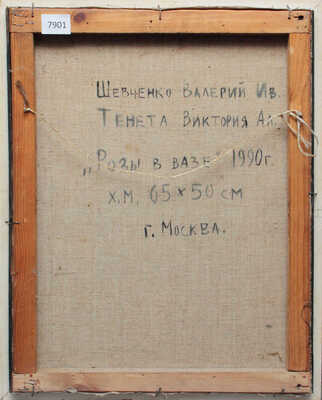 7901
Шевченко Валерий Ив.
Тенета Виктория Ал.
„Розы в вазе" 1990г.
х.м. 65×50 см
г. Москва.